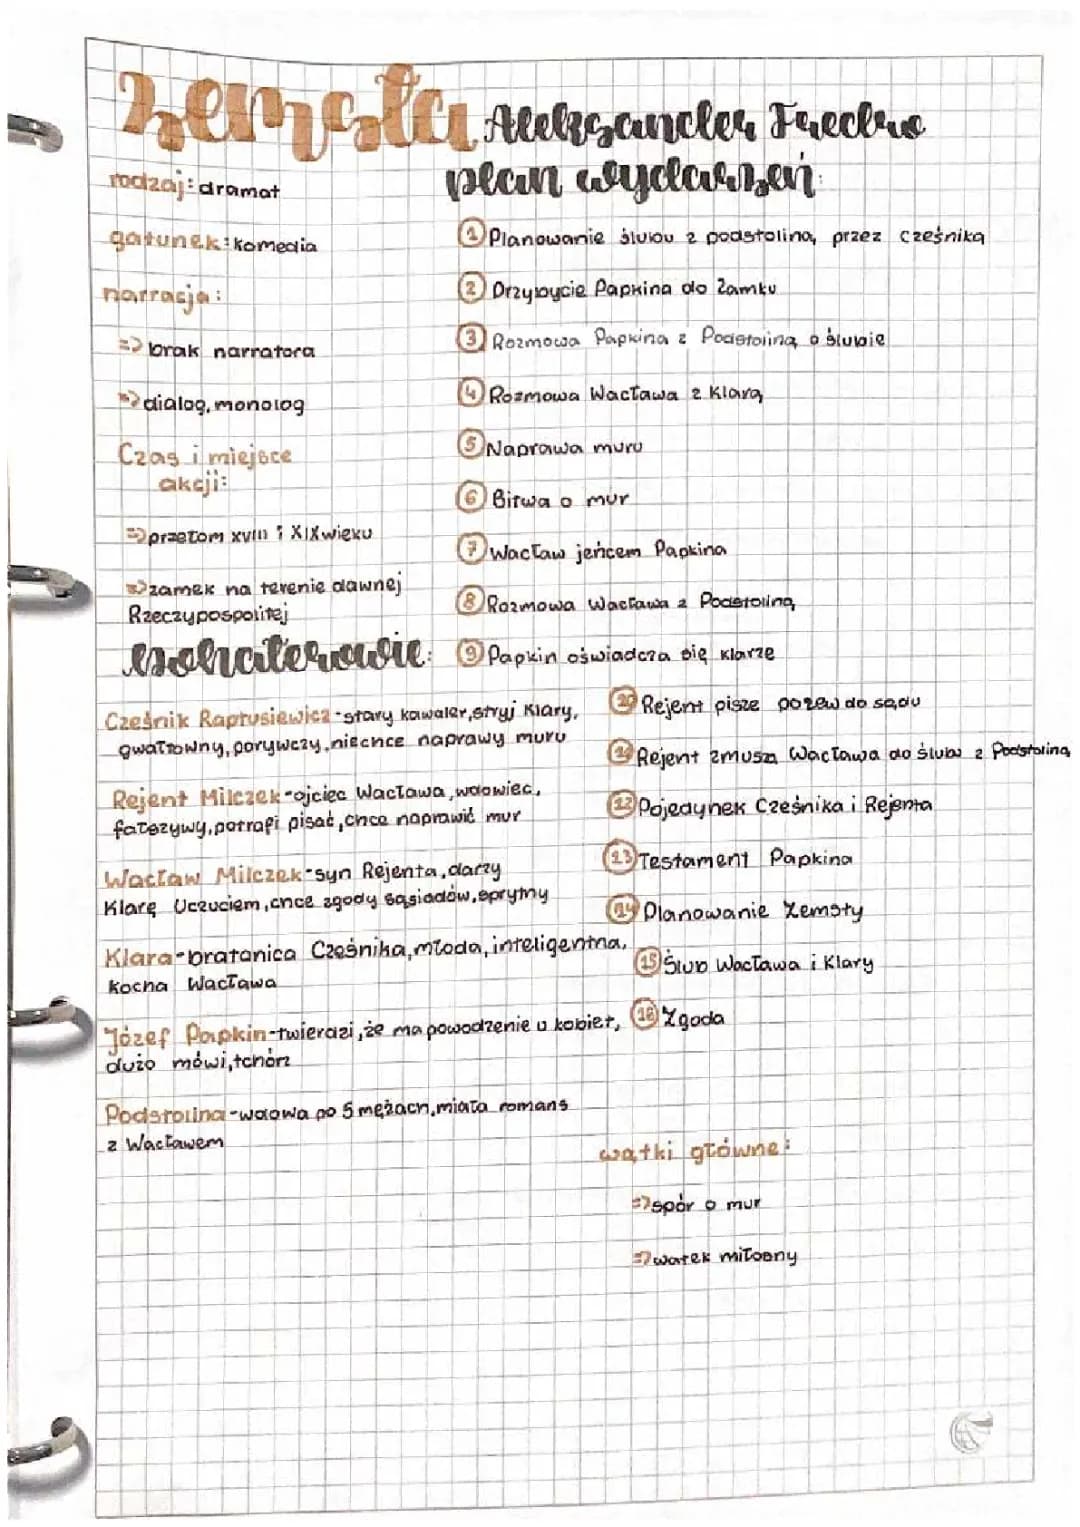 Zemsta Aleksander Fredro
rodzaj: dramat
gatunek: komedia
narracja:
=> brak narratora
=> dialog, monolog
Czas i miejsce
akcji:
=> przełom XVIII i XIX wieku
=> zamek na terenie dawnej
Rzeczypospolitej
bohaterowie:
Cześnik Raptusiewicz - stary kawaler, stryj Klary,
gwałtowny, porywczy, niechce naprawy muru
Rejent Milczek - ojciec Wacława, wdowiec,
fałszywy, potrafi pisać, chce naprawić mur
Wacław Milczek - syn Rejenta, darzy
Klarę Uczuciem, chce zgody sąsiadów, sprytny
Klara - bratanica Cześnika, młoda, inteligentna,
kocha Wacława
Józef Papkin - twierdzi, że ma powodzenie u kobiet,
dużo mówi, tchórz
Podstolina - wdowa po 5 mężach, miała romans
z Wacławem
plan wydarzeń:
1 Planowanie ślubu z podstoliną, przez cześnika
2 Przybycie Papkina do Zamku
3 Rozmowa Papkina z Podstoliną o ślubie
4 Rozmowa Wacława z Klarą
5 Naprawa muru
6 Bitwa o mur
7 Wacław jeńcem Papkina
8 Rozmowa Wacława z Podstoliną
9 Papkin oświadcza się klarze
10 Rejent pisze pozew do sądu
11 Rejent zmusza Wacława do ślubu z Podstoliną
12 Pojedynek Cześnika i Rejenta
13 Testament Papkina
14 Planowanie Zemsty
15 Ślub Wacława i Klary
16 Zgoda
wątki główne:
=> spór o mur
=> wątek miłosny